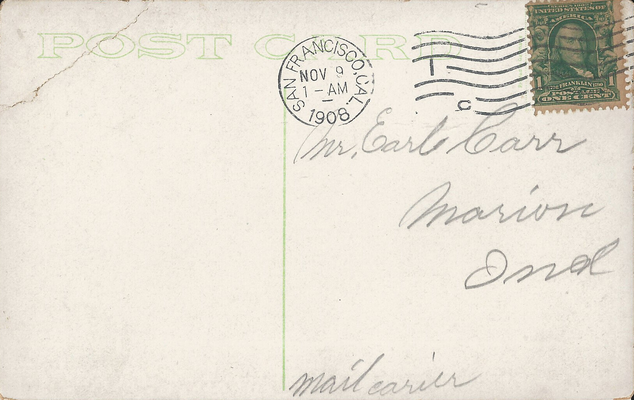 POST CARD
SAN FRANCISCO, CAL.
NOV 9
1-AM
1908
UNITED STATES OF
AMERICA
FRANKLIN
1 POSTAGE 1
ONE CENT
Mr. Earl Carr
Marion
Ind
Mail carier